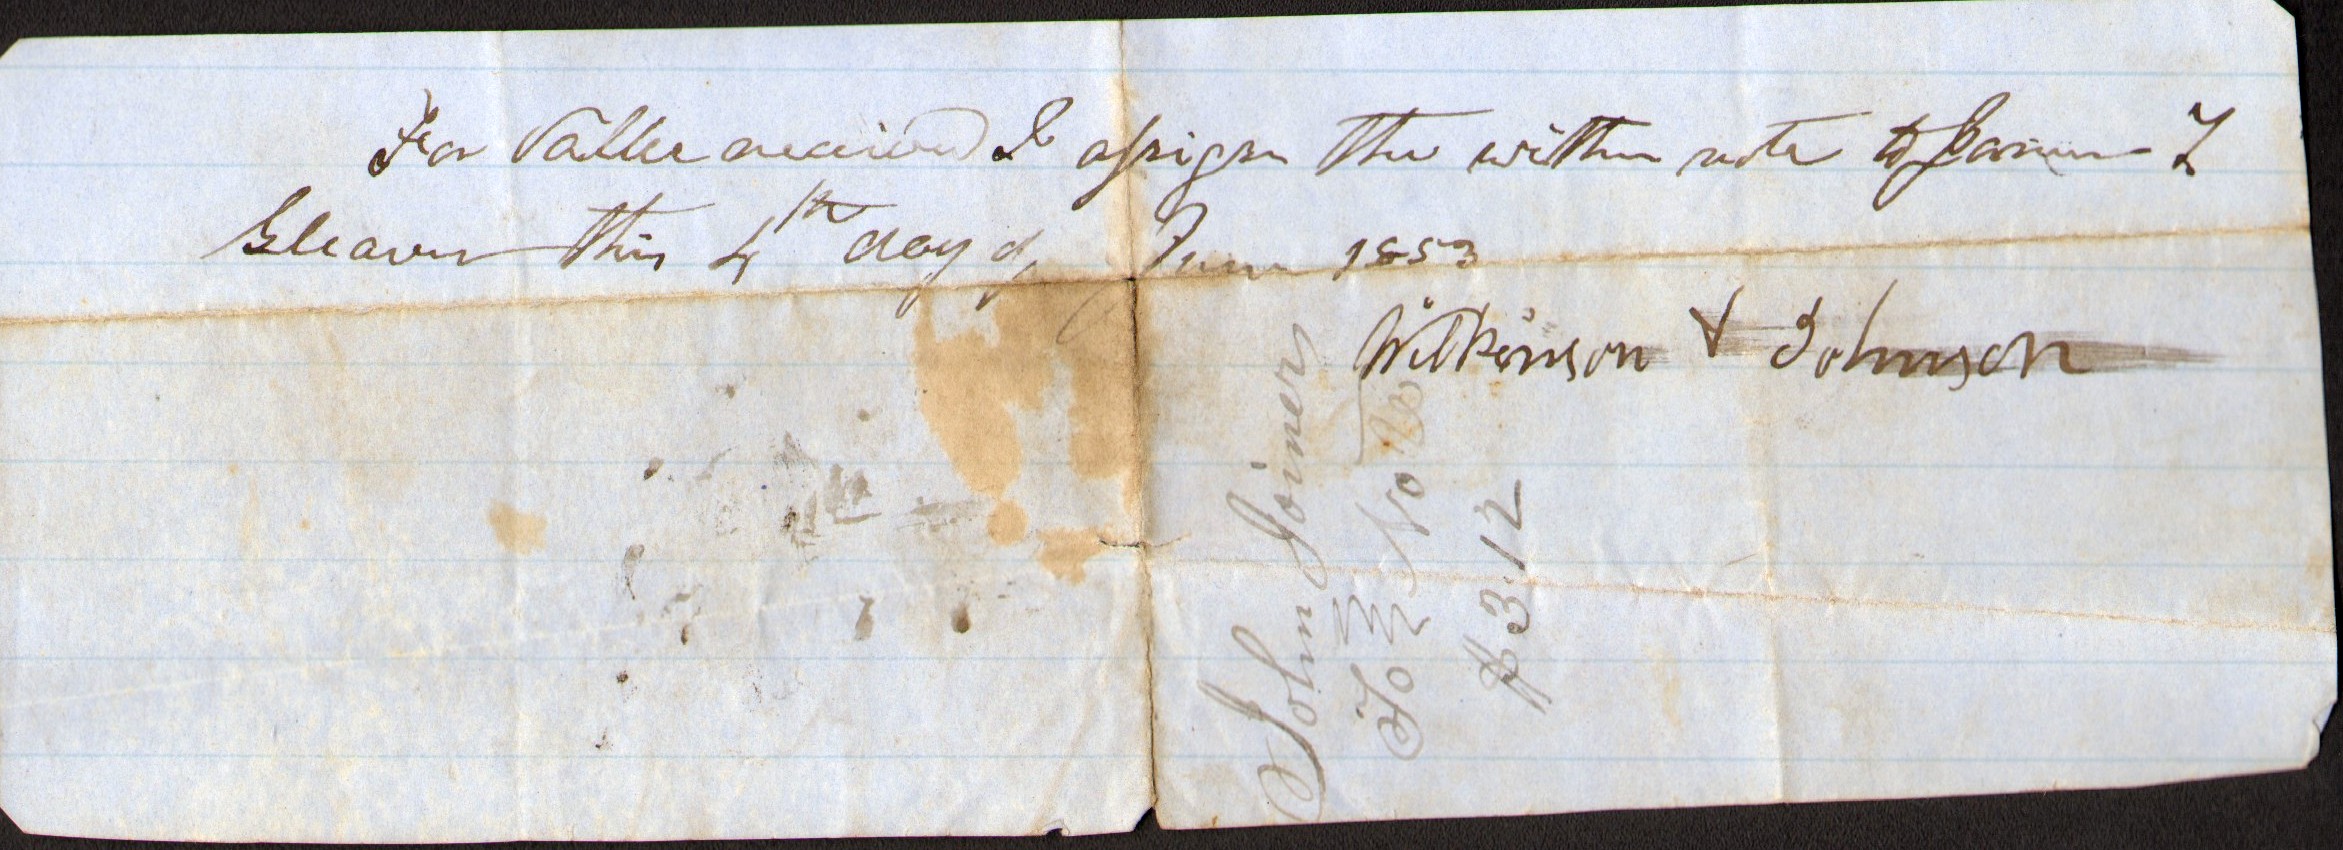 For Value received I assign the within note to James T
Cleaver this 4th day of June 1853
Wilkinson & Johnson
John Joiner
To Note
$3.12